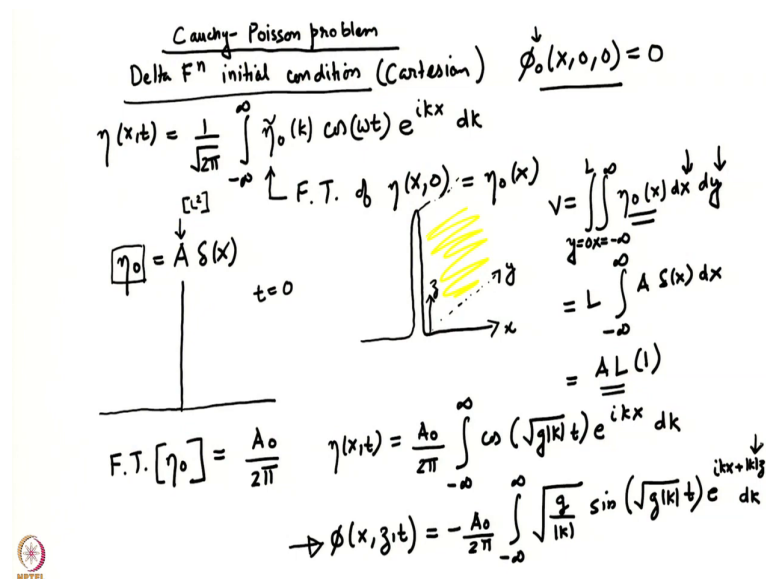 Cauchy-Poisson problem
Delta Fⁿ initial condition (Cartesian) φ₀(x,0,0) = 0
η(x,t) = 1/√2π ∫_{-∞}^{∞} η̃₀(k) cos(ωt) e^{ikx} dk
↑ F.T. of η(x,0) = η₀(x)
[L²]
↓
η₀ = A δ(x)
t=0
z
y
x
V = ∫_{y=0}^{L} ∫_{x=-∞}^{∞} η₀(x) dx dy
= L ∫_{-∞}^{∞} A δ(x) dx
= AL(1)
F.T.[η₀] = A₀/2π
η(x,t) = A₀/2π ∫_{-∞}^{∞} cos(√g|k| t) e^{ikx} dk
→ φ(x,z,t) = -A₀/2π ∫_{-∞}^{∞} √(g/|k|) sin(√g|k| t) e^{ikx+|k|z} dk
NPTEL